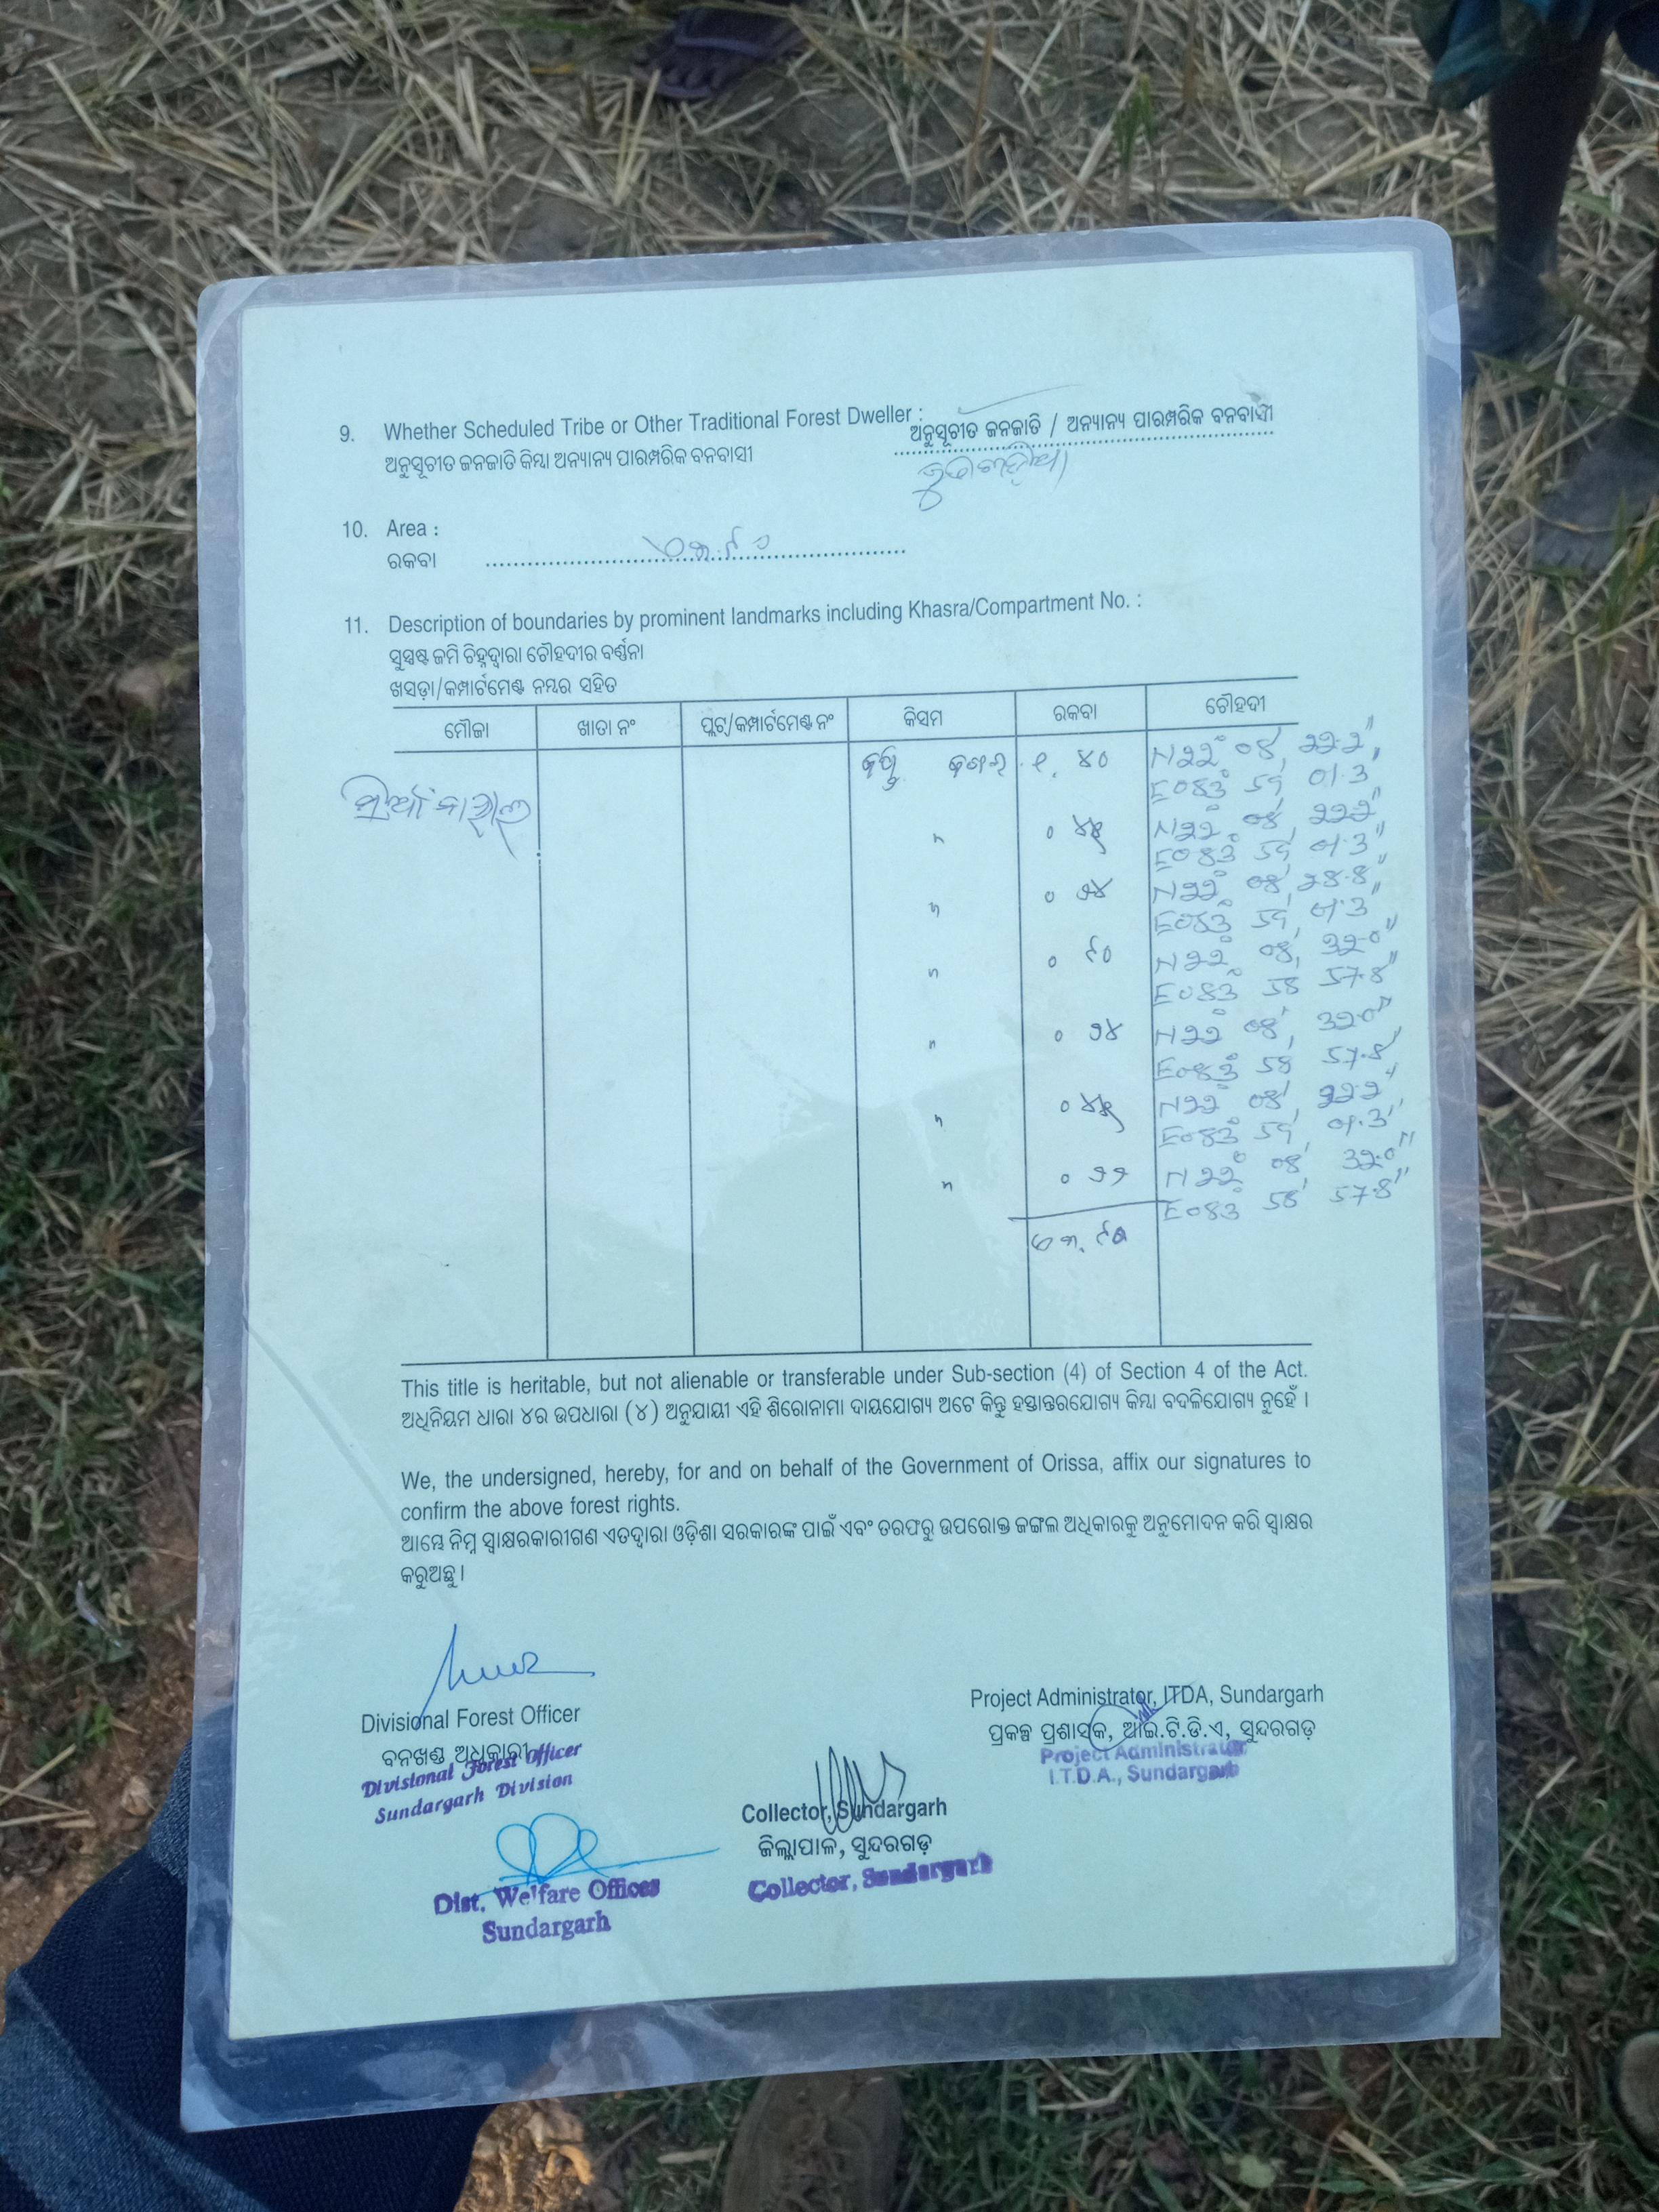 9. Whether Scheduled Tribe or Other Traditional Forest Dweller : ଅନୁସୂଚୀତ ଜନଜାତି / ଅନ୍ୟାନ୍ୟ ପାରମ୍ପରିକ ବନବାସୀ
ଅନୁସୂଚୀତ ଜନଜାତି କିମ୍ବା ଅନ୍ୟାନ୍ୟ ପାରମ୍ପରିକ ବନବାସୀ
10. Area :
ରକବା
11. Description of boundaries by prominent landmarks including Khasra/Compartment No. :
ସୁସ୍ପଷ୍ଟ ଜମି ଚିହ୍ନଦ୍ୱାରା ଚୌହଦୀର ବର୍ଣ୍ଣନା
ଖସଡ଼ା/କମ୍ପାର୍ଟମେଣ୍ଟ ନମ୍ବର ସହିତ
ମୌଜା ଖାତା ନଂ ପ୍ଲଟ/କମ୍ପାର୍ଟମେଣ୍ଟ ନଂ କିସମ ରକବା ଚୌହଦୀ
୧. ୪୦ N22° 08' 22.2"
E083° 59' 01.3"
N22° 08' 22.2"
E083° 59' 01.3"
୦ ୭୪ N22° 08' 28.8"
E083° 59' 01.3"
୦ ୯୦ N22° 08' 32.0"
E083° 58' 57.8"
୦ ୨୪ N22° 08' 32.0"
E083° 58' 57.8"
N22° 08' 22.2"
E083° 59' 01.3"
୦ ୨୨ N22° 08' 32.0"
E083° 58' 57.8"
This title is heritable, but not alienable or transferable under Sub-section (4) of Section 4 of the Act.
ଅଧିନିୟମ ଧାରା ୪ର ଉପଧାରା (୪) ଅନୁଯାୟୀ ଏହି ଶିରୋନାମା ଦାୟଯୋଗ୍ୟ ଅଟେ କିନ୍ତୁ ହସ୍ତାନ୍ତରଯୋଗ୍ୟ କିମ୍ବା ବଦଳିଯୋଗ୍ୟ ନୁହେଁ ।
We, the undersigned, hereby, for and on behalf of the Government of Orissa, affix our signatures to
confirm the above forest rights.
ଆମ୍ଭେ ନିମ୍ନ ସ୍ୱାକ୍ଷରକାରୀଗଣ ଏତଦ୍ୱାରା ଓଡ଼ିଶା ସରକାରଙ୍କ ପାଇଁ ଏବଂ ତରଫରୁ ଉପରୋକ୍ତ ଜଙ୍ଗଲ ଅଧିକାରକୁ ଅନୁମୋଦନ କରି ସ୍ୱାକ୍ଷର
କରୁଅଛୁ ।
Project Administrator, ITDA, Sundargarh
ପ୍ରକଳ୍ପ ପ୍ରଶାସକ, ଆଇ.ଟି.ଡି.ଏ, ସୁନ୍ଦରଗଡ଼
Project Administrator
I.T.D.A., Sundargarh
Divisional Forest Officer
ବନଖଣ୍ଡ ଅଧିକାରୀ
Divisional Forest Officer
Sundargarh Division
Collector, Sundargarh
ଜିଲ୍ଲାପାଳ, ସୁନ୍ଦରଗଡ଼
Collector, Sundargarh
Dist. Welfare Officer
Sundargarh